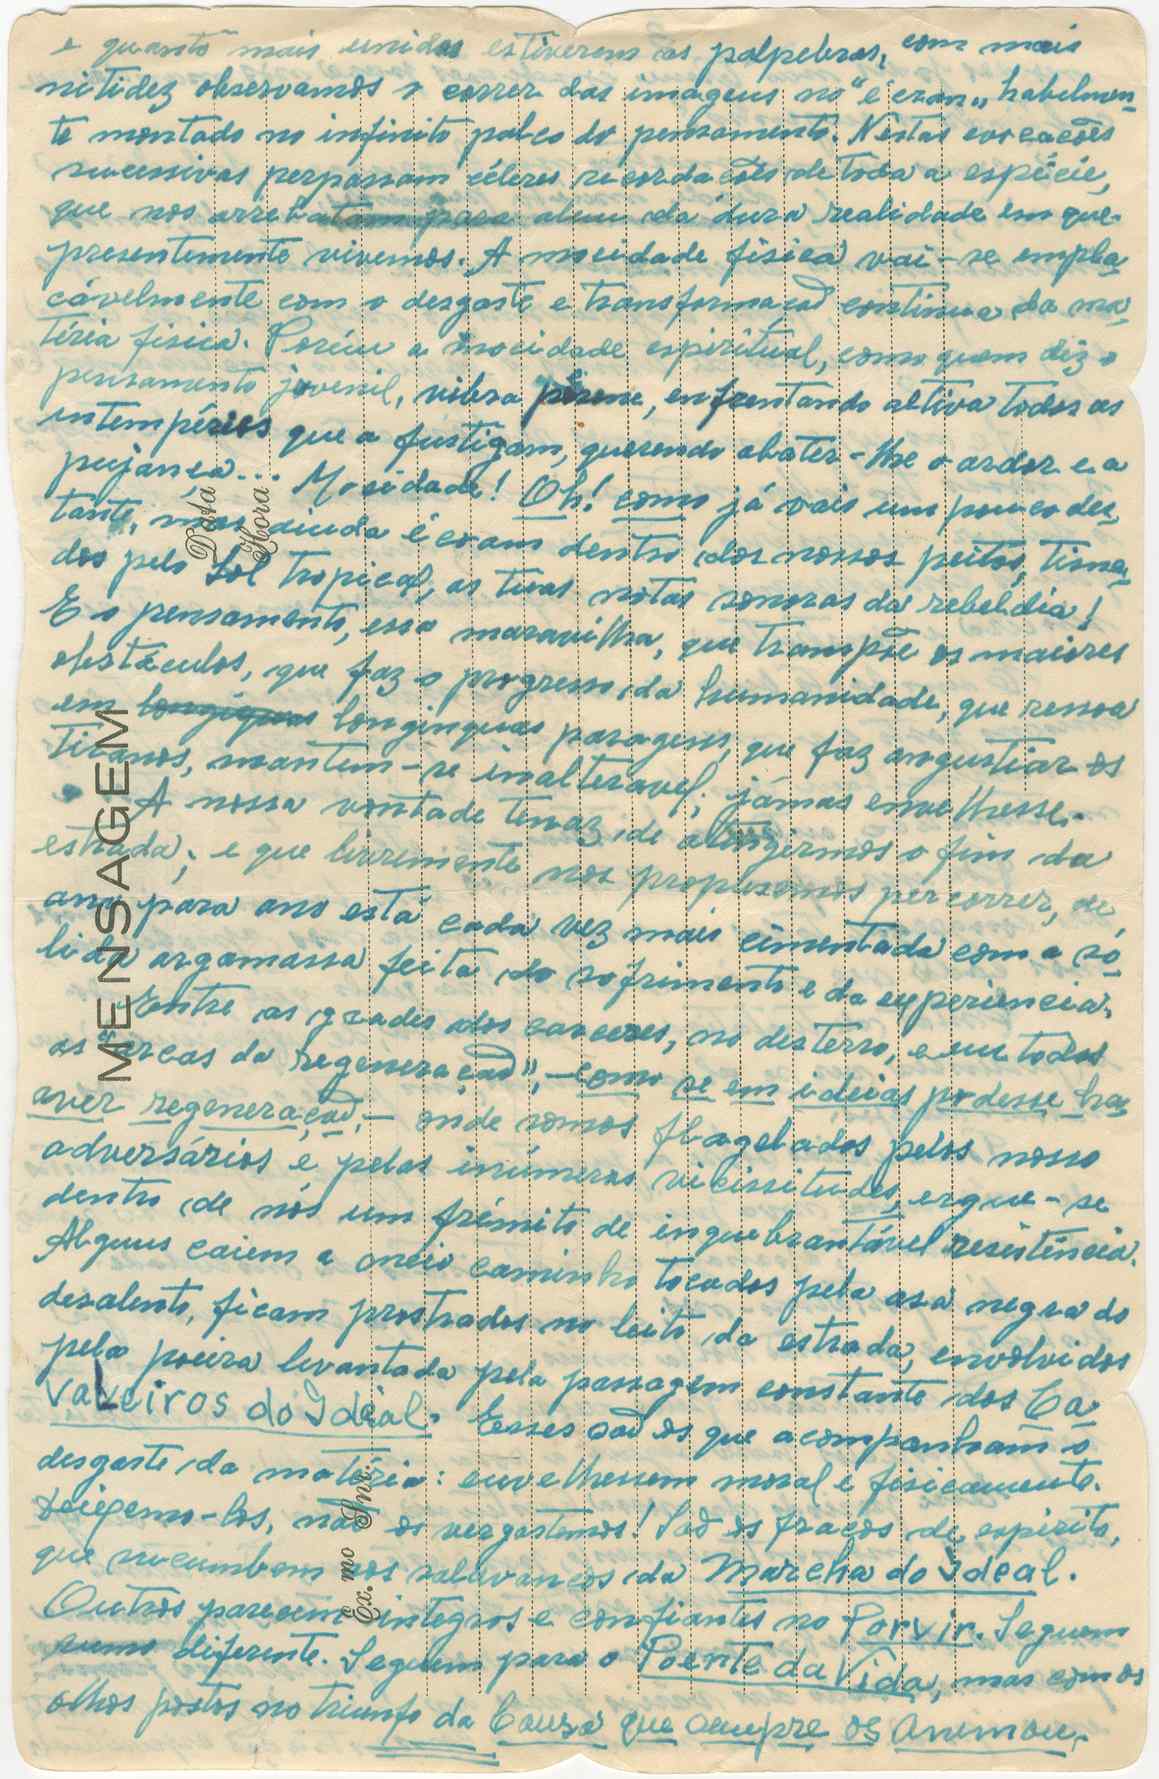 e quanto mais unidas estiverem as palpebras, com mais
nitidez observamos o correr das imagens no "écran„ habelmen-
te montado no infinito palco do pensamento. Nestas evocações
sucessivas perpassam céleres recordações de toda a espécie,
que nos arrebatam para alem da dura realidade em que
presentemente vivemos. A mocidade fisica vai-se empla-
cávelmente com o desgaste e transformação continua da ma-
téria fisica. Porém a mocidade espiritual, como quem diz o
pensamento jovenil, vibra pérene, enfrentando altiva todos as
intempéries que a fustigam, querendo abater-lhe o ardor e a
pujança... Mocidade! Oh! como já vais um pouco des-
tante, mas ainda écoam dentro dos nossos peitos, tisna-
dos pelo Sol tropical, as tuas notas sonoras da rebeldia!
E o pensamento, essa maravilha, que transpõe os maiores
obstáculos, que faz o progresso da humanidade, que ressoa
em longiquas longinquas paragens, que faz angustiar os
tiranos, mantem-se inalteravel; jámas envelhesse.
A nossa vontade tenaz de atingermos o fim da
estrada, e que livremente nos propusemos percorrer, de
ano para ano está cada vez mais cimentada com a só-
lida argamassa feita do sofrimento e da experiencia.
Entre as grades dos carceres, no desterro, e em todas
as "arcas da regeneração", - como se em ideias podesse ha-
aver regeneração, - onde somos flagelados pelos nosso
adversários e pelas inúmeras vicissitudes, ergue-se
dentro de nós um frémito de inquebrantável resistência.
Alguns caiem a meio caminho tocados pela asa negra do
desalento, ficam prostrados no leito da estrada, envolvidos
pela poeira levantada pela passagem constante dos Ca-
valeiros do Ideal. Esses são os que acompanham o
desgaste da matéria: envelhessem moral e fisicamente.
Deixemo-los, não os vergastemos! São os fracos de espirito,
que sucumbem aos solavancos da Marcha do Ideal.
Outros parecem integros e confiantes no Porvir. Seguem
rumo diferente. Seguem para o Poente da Vida, mas com os
olhos postos no triunfo da Causa que sempre os animou.
Data
Hora
MENSAGEM
Ex.mo Snr.